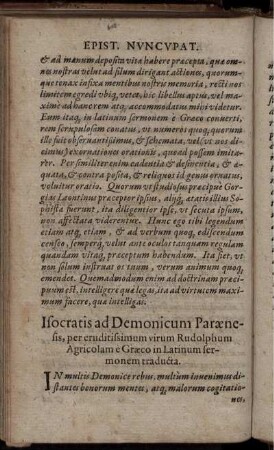 EPIST. NVNCVPAT.
& ad manum deposita vita habere præcepta, quæ om-
neis nostras velut ad filum dirigant actiones, quorum-
que tenax infixa mentibus nostris memoria, recti nos
limitem egredi vbiq; vetet, hic libellus aptus, vel ma-
ximè ad hanc rem atq; accommodatus mihi videtur.
Eum itaq; in latinum sermonem è Græco conuerti,
rem scrupulosam conatus, vt numeros quoq;, quorum
ille fuit obseruantissimus, & schemata, vel (vt nos di-
cimus) exornationes orationis, quoad possem imita-
rer. Per similiter enim cadentia & desinentia, & æ-
quata, & contra posita, & reliquos id genus ornatus,
voluitur oratio. Quorum vt studiosus præcipuè Gor-
gias Leontinus præceptor ipsius, alijq; ætatis illius So-
phistæ fuerunt, ita diligenter ipse, vt secuta ipsum,
non affectata viderentur. Hunc ego tibi legendum
etiam atq; etiam, & ad verbum quoq; ediscendum
censeo, semperq; velut ante oculos tanquam regulam
quandam vitæ, præceptum habendum. Ita fiet, vt
non solum instruas os tuum, verum animum quoq;
emendet. Quemadmodum enim ad doctrinam præci-
puum est, intelligere quæ legas, ita ad virtutem maxi-
mum facere, quæ intelligas.
Isocratis ad Demonicum Paræne-
sis, per eruditissimum virum Rudolphum
Agricolam è Græco in Latinum ser-
monem traducta.
IN multis Demonice rebus, multum inuenimus di-
stantes bonorum mentes, atq; malorum cogitatio-
nes.